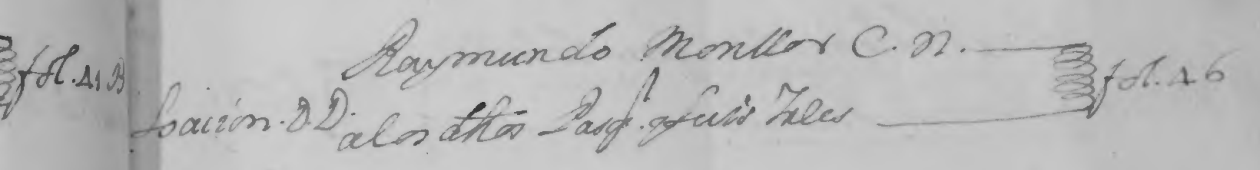 fol. 41 B
Raymundo Monllor C. N.
Loacion. D D. a los dhos Pasql. y Luis fol. 46